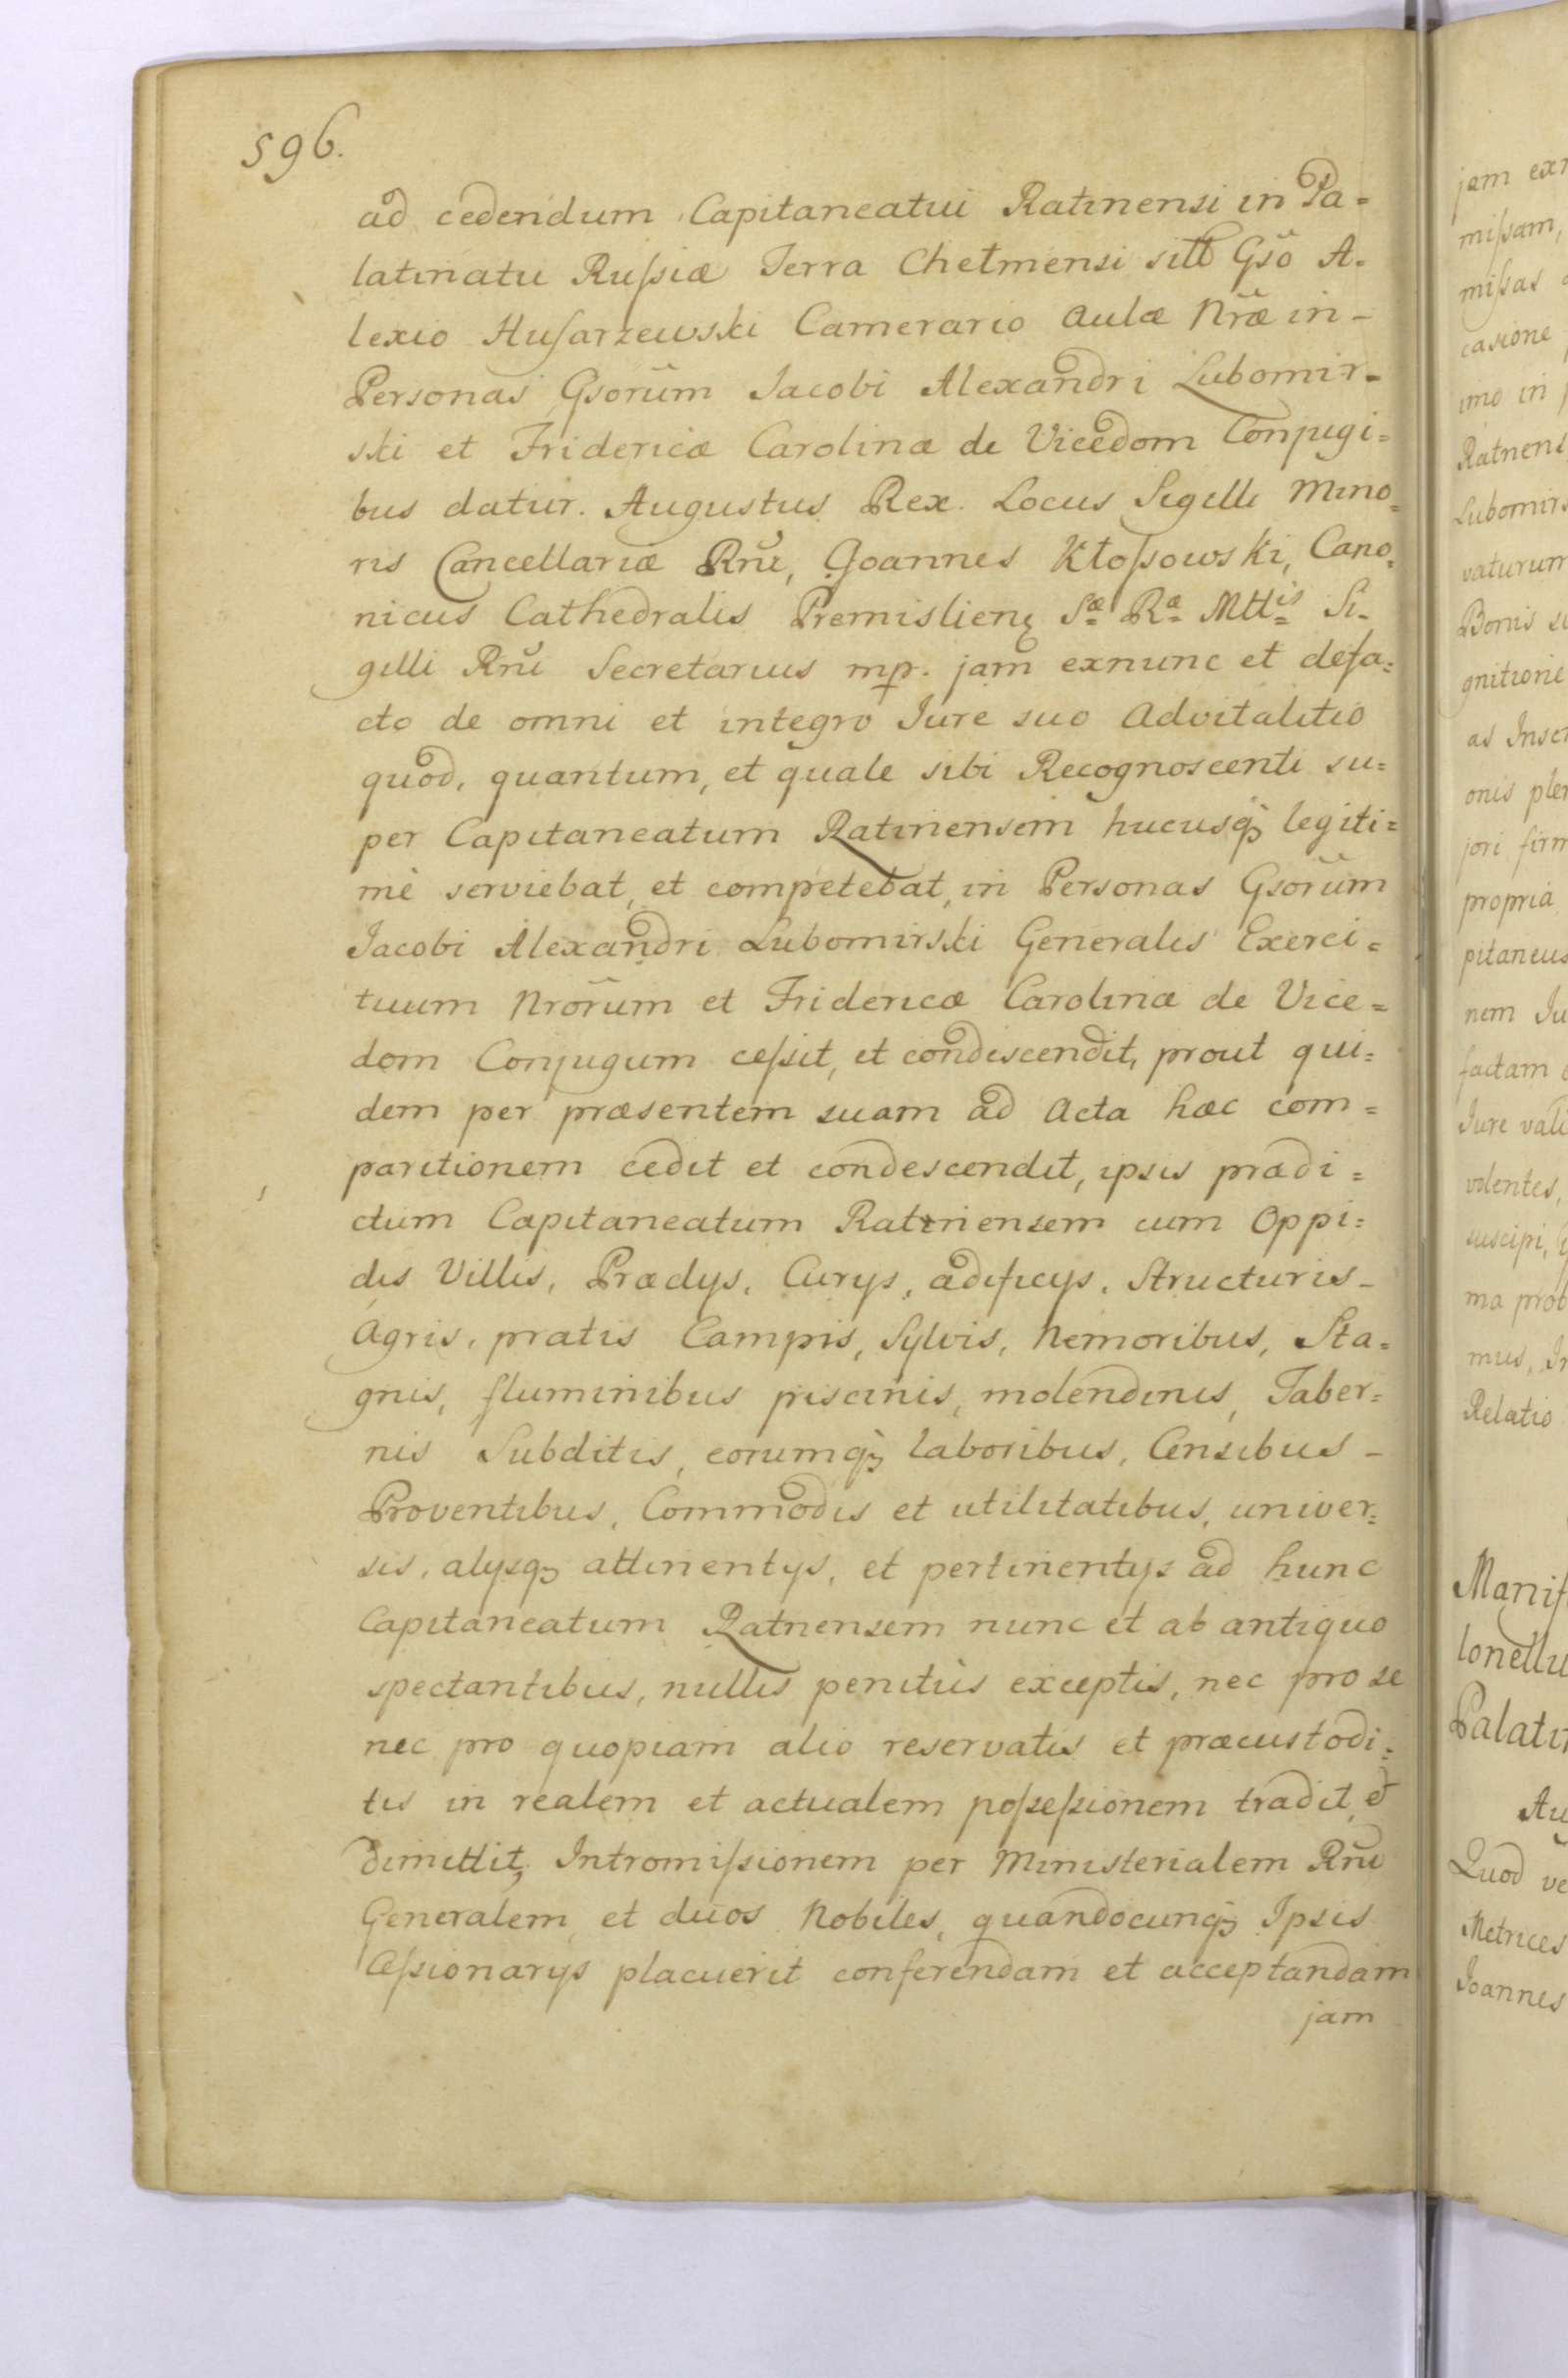 596.
ad cedendum Capitaneatui Ratnensi in Pa=
latinatu Rußiæ Terra Chelmensi sitt Gsõ A-
lexio Husarzewski Camerario Aulæ Nræ in-
Personas Gsorum Jacobi Alexandri Lubomir-
ski et Fridericæ Carolinæ de Vicedom Conjugi=
bus datur. Augustus Rex. Locus Sigilli Mino=
ris Cancellariæ Rñi, Joannes Kłoßowski, Cano=
nicus Cathedralis Premislieng Sæ Ræ Mttis Si-
gilli Rñi Secretarius mp. jam exnunc et defa=
cto de omni et integro Jure suo Advitalitio
quod, quantum, et quale sibi Recognoscenti su=
per Capitaneatum Ratnensem hucusq; legiti=
mè serviebat, et competebat, in Personas Gsorum
Jacobi Alexandri Lubomirski Generalis Exerci=
tuum Nrorum et Fridericæ Carolinæ de Vice=
dom Conjugum ceßit, et condiscendit, prout qui=
dem per præsentem suam ad Acta hæc com=
paritionem cedit et condescendit, ipsis prædi=
ctum Capitaneatum Ratnensem cum Oppi=
dis Villis, Prædys, Curys, ædificys, Structuris-
Agris, pratis Campis, Sylvis, Nemoribus, Sta=
gnis, fluminibus piscinis, molendinis, Taber=
nis Subditis, eorumq; laboribus, Censibus-
Proventibus, Commodis et utilitatibus, univer=
sis, alysq; attinentys, et pertinentys ad hunc
Capitaneatum Ratnensem nunc et ab antiquo
spectantibus, nullis penitùs exceptis, nec pro se
nec pro quopiam alio reservatis et præcustodi=
tis in realem et actualem poßeßionem tradit, et
dimittit, Intromißionem per Ministerialem Rñi
Generalem et duos Nobiles, quandocunq; Ipsis
Ceßionarys placuerit conferendam et acceptandam
jam
mißam,
mißas
casione
imo in
Ratnens
Lubomirs
vaturum
Bonis
gnitione
as Inscr
onis plen
jori firm
propria
pitaneus
nem Ju
factam
Jure vali
volentes,
suscipi,
ma prob
mus,
Relatio
Manif
lonellu
Palati
Au
Quod ve
Metrices
Joannes